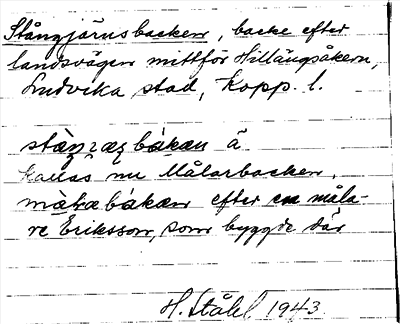 Stångjärnsbacken, backe efter
landsvägen mittför Hillängsåkern,
Ludvika stad, Kopp. l.
bákan å
Kallas nu Målarbacken,
bákan efter en måla-
re Eriksson, som byggde där
H. Ståhl 1943.